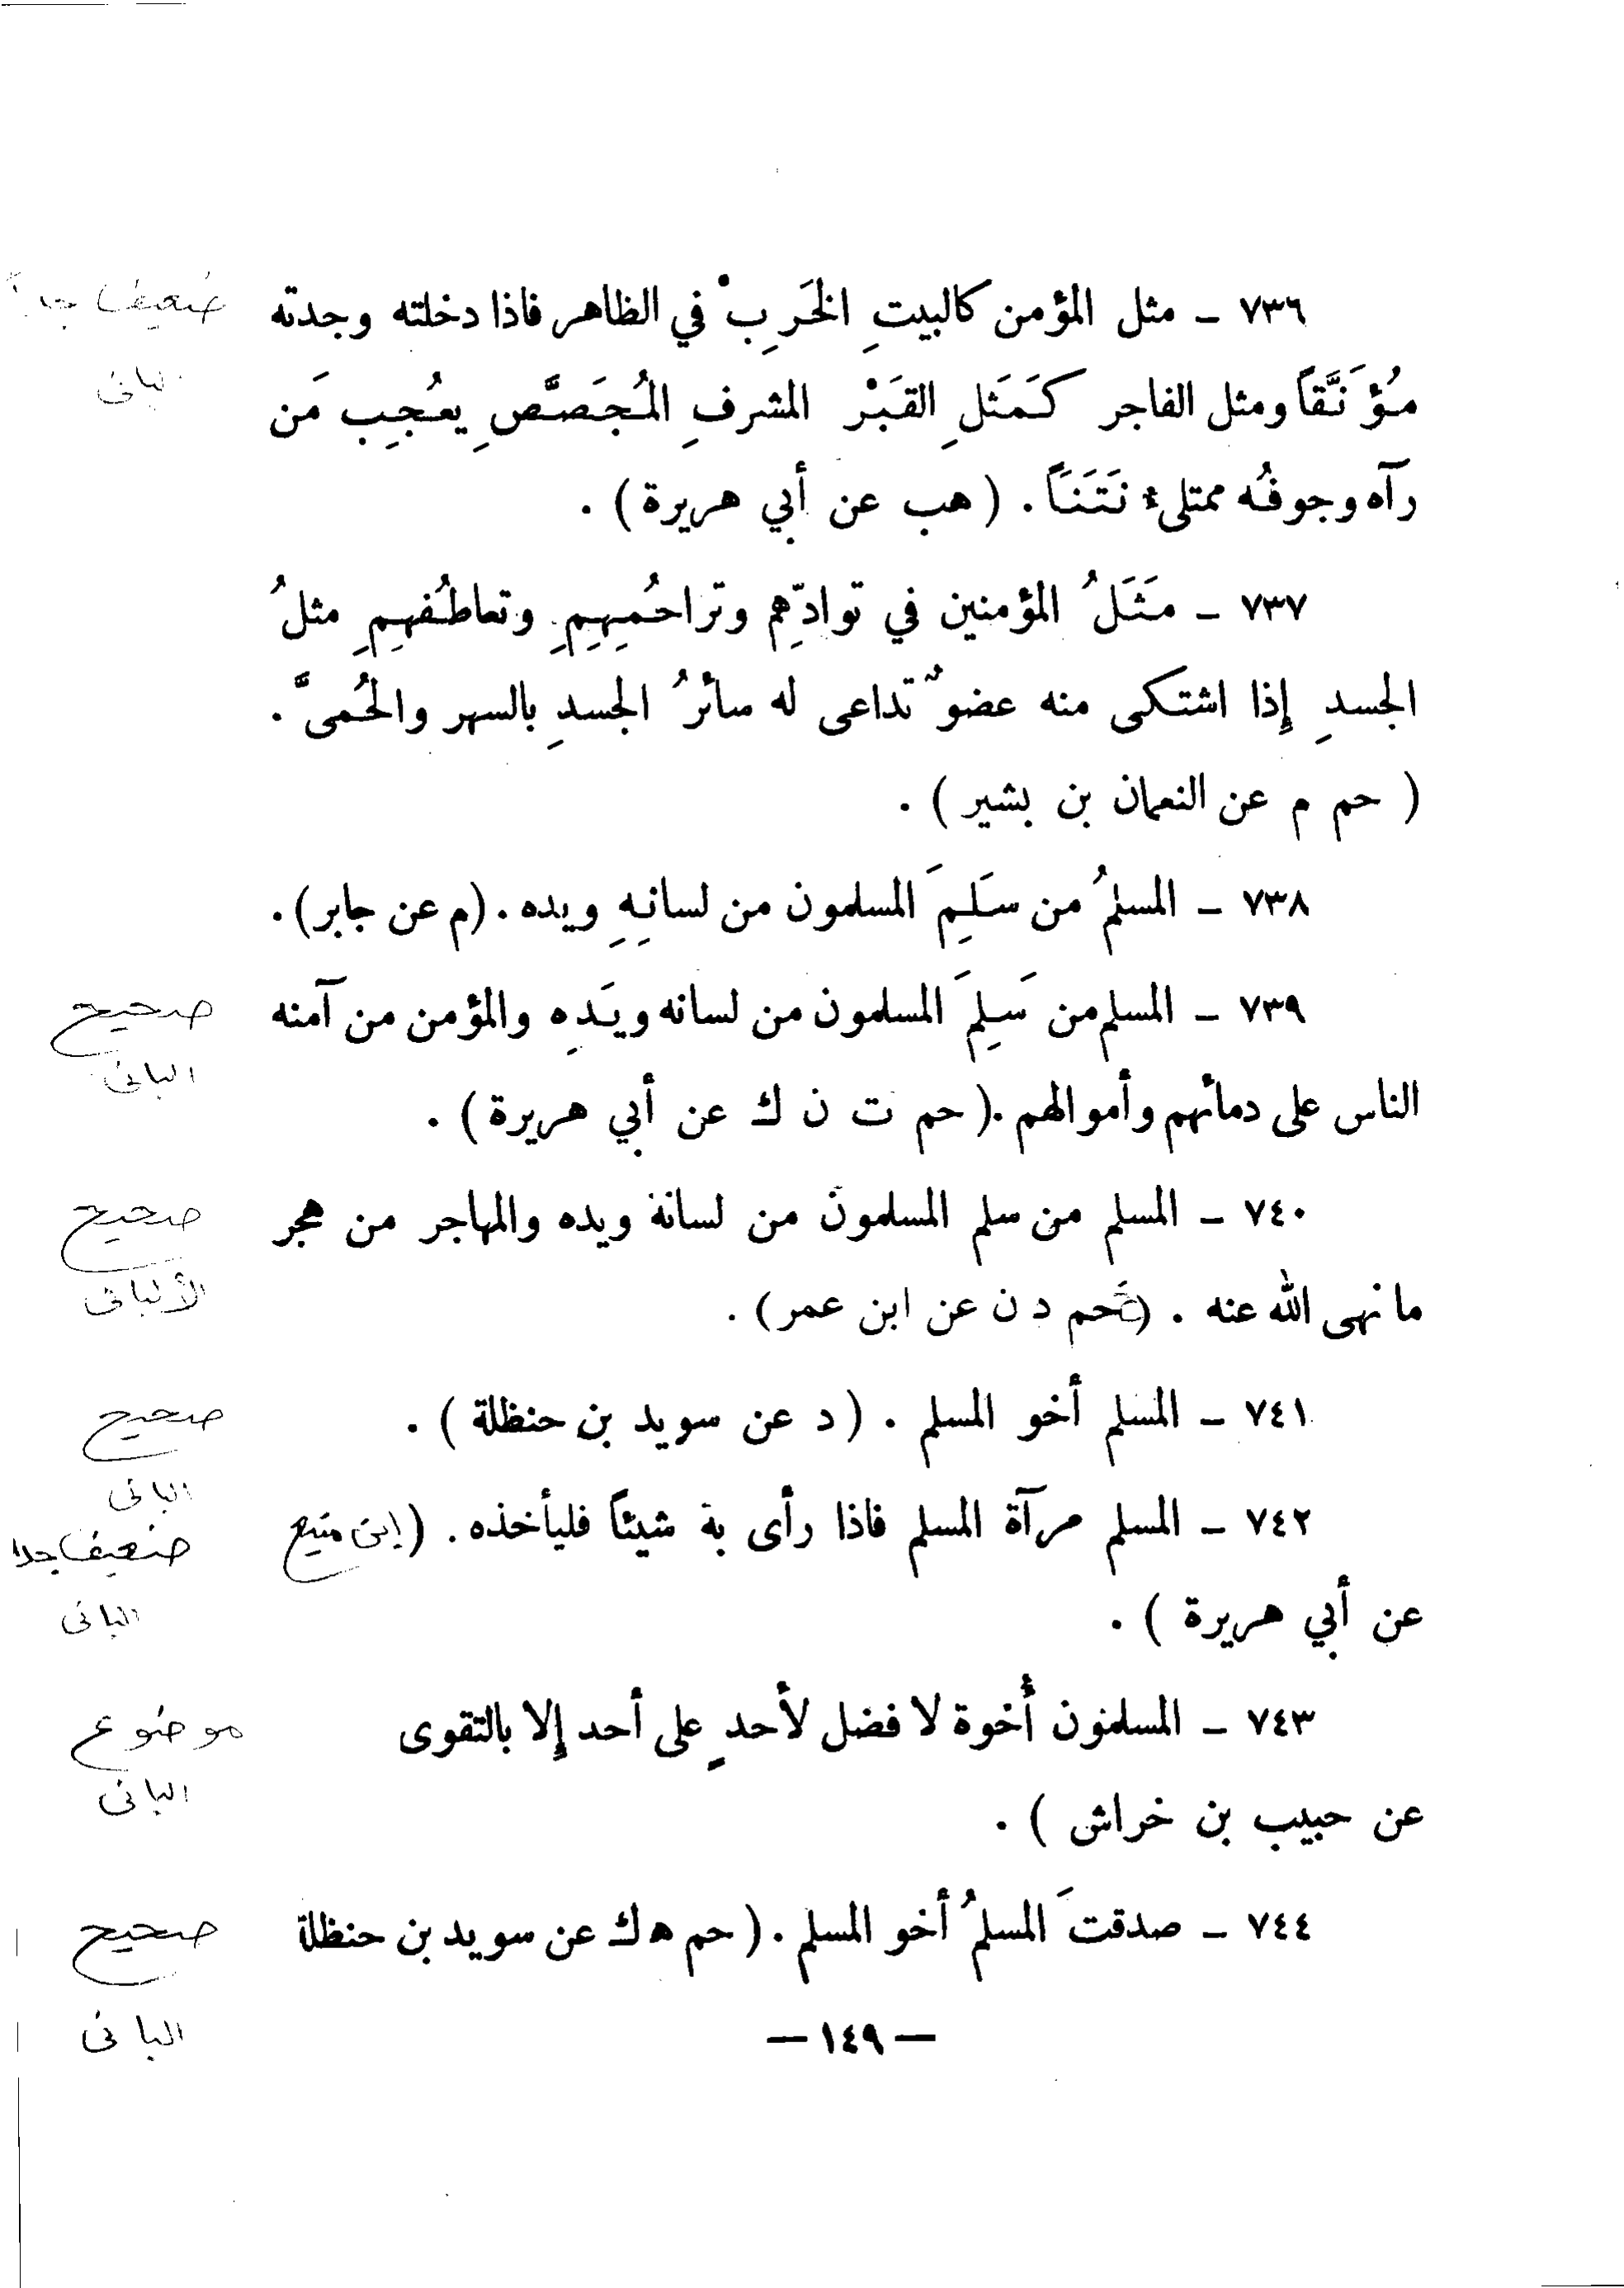 ٧٣٦ ـ مثل المؤمن كالبيتِ الخَرِبْ في الظاهر فاذا دخلته وجدته
ضعيف جداً
مُؤَنَّقاً ومثل الفاجر كَمَثَلِ القَبَرْ المشرفِ المُجَصَّصِ يعُجِب مَن
البانى
رآه وجوفُه ممتلىء نَتَنَاً . ( هب عن أبي هريرة ) .
٧٣٧ ـ مَثَلُ المؤمنين في توادّهِم وتراحُمِهِمِ وتعاطُفهِمِ مثلُ
الجسدِ إِذا اشتكى منه عضوٌ تداعى له سائرُ الجسدِ بالسهر والحُمىَّ .
( حم م عن النعمان بن بشير ) .
٧٣٨ ـ المسلمُ من سَلِمَ المسلمون من لسانِهِ ويده . (م عن جابر) .
٧٣٩ ـ المسلم من سَلِمَ المسلمون من لسانه ويَدِه والمؤمن من آمنه
صحيح
البانى
الناس على دمائهم وأموالهم .( حم ت ن ك عن أبي هريرة ) .
٧٤٠ ـ المسلم من سلم المسلمون من لسانة ويده والمهاجر من هجر
صحيح
الألبانى
ما نهى الله عنه . (خ حم د ن عن ابن عمر) .
٧٤١ ـ المسلم أخو المسلم . ( د عن سويد بن حنظلة ) .
صحيح
البانى
٧٤٢ ـ المسلم مرآة المسلم فاذا رأى بة شيئاً فليأخذه . ( ابن منيع
ضعيف جدا
عن أبي هريرة ) .
البانى
٧٤٣ ـ المسلمون أُخوة لا فضل لأحدٍ على أحد إِلا بالتقوى
موضوع
البانى
عن حبيب بن خراش ) .
٧٤٤ ـ صدقتَ المسلمُ أخو المسلم . ( حم ه ك عن سويد بن حنظلة
صحيح
البانى
— ١٤٩ —